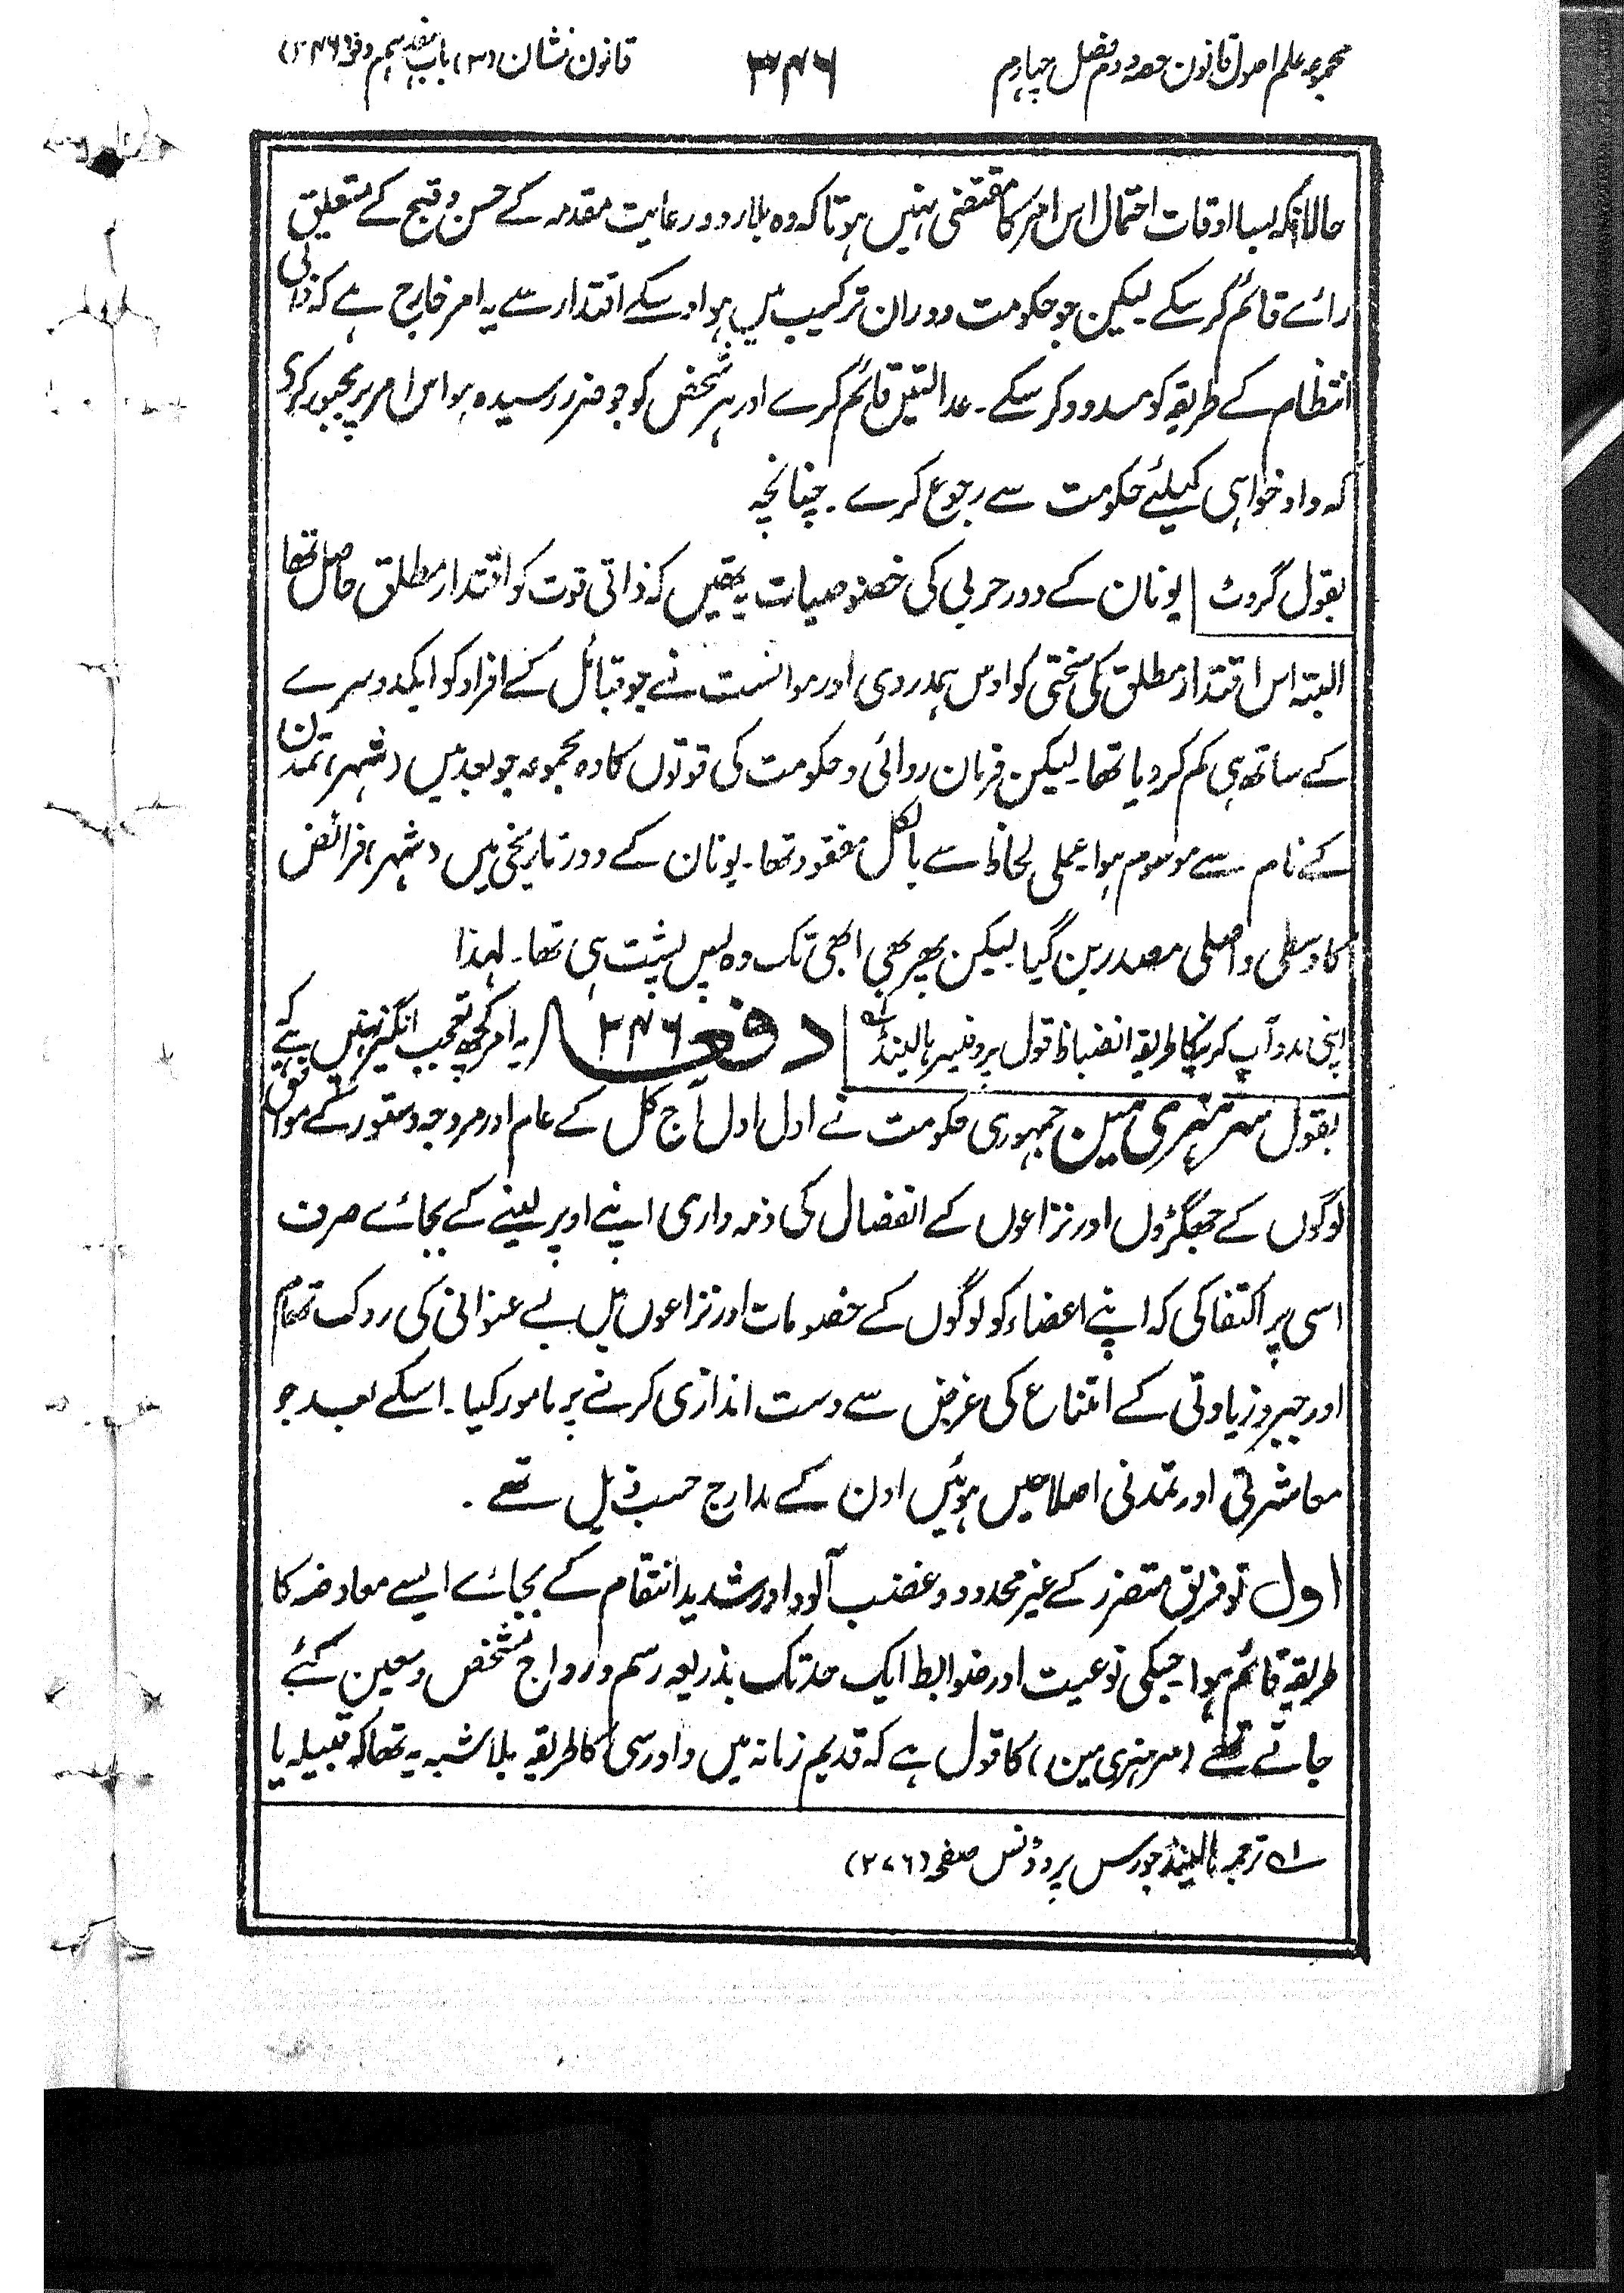 مجموعہ علم اصول قانون حصہ دوم فصل چہارم
۳۴۶
قانون نشان (۳) باب ہفدہم دفعہ (۲۴۶)
حالانکہ بسا اوقات احتمال اس امر کا مقتضی نہیں ہوتا کہ وہ بلا رو و رعایت مقدمہ کے حسن و قبح کے متعلق
رائے قائم کر سکے لیکن جو حکومت دوران ترکیب میں ہو اوسکے اقتدار سے یہ امر خارج ہے کہ ذاتی
انتظام کے طریقہ کو مسدود کر سکے۔ عدالتیں قائم کرے اور ہر شخص کو جو ضرر رسیدہ ہو اس امر پر مجبور کرے
کہ داد خواہی کیلئے حکومت سے رجوع کرے۔ چنانچہ
بقول گروٹ | یونان کے دور حربی کی خصوصیات یہ تھیں کہ ذاتی قوت کو اقتدار مطلق حاصل تھا
البتہ اس اقتدار مطلق کی سختی کو اوس ہمدردی اور موانست نے جو قبائل کے افراد کو ایکدوسرے
کے ساتھ تھی کم کر دیا تھا۔ لیکن فرمان روائی و حکومت کی قوتوں کا وہ مجموعہ جو بعد میں (شہر) تمدن
کے نام سے موسوم ہوا عملی لحاظ سے بالکل مفقود تھا۔ یونان کے دور تاریخی میں (شہر) فرائض
کا وسطی و اصلی مصدر بن گیا لیکن پھر بھی ابھی تک وہ پس پشت ہی تھا۔ لہذا
اپنی مدد آپ کرنیکا طریقہ انضباط قول پروفیسر ہالینڈ لہ | دفعہ ۲۴۶ (یہ امر کچھ تعجب انگیز نہیں ہے کہ
بقول سر ہنری مین جمہوری حکومت نے اول اول آج کل کے عام اور مروجہ دستور کے موافق
لوگوں کے جھگڑوں اور نزاعوں کے انفصال کی ذمہ داری اپنے اوپر لینے کے بجائے صرف
اسی پر اکتفا کی کہ اپنے اعضاء کو لوگوں کے خصومات اور نزاعوں میں بے عنوانی کی روک تھام
اور جبر و زیادتی کے امتناع کی غرض سے دست اندازی کرنے پر مامور کیا۔ اسکے بعد جو
معاشرتی اور تمدنی اصلاحیں ہوئیں اون کے مدارج حسب ذیل تھے۔
اول تو فریق متضرر کے غیر محدود و غضب آلود اور شدید انتقام کے بجائے ایسے معاوضہ کا
طریقہ قائم ہوا جسکی نوعیت اور ضوابط ایک حد تک بذریعہ رسم و رواج مشخص و معین کئے
جاتے تھے (سر ہنری مین) کا قول ہے کہ قدیم زمانہ میں دادرسی کا طریقہ بلا شبہ یہ تھا کہ قبیلہ یا
لہ ترجمہ ہالینڈ جورس پروڈنس صفحہ (۲۷۶)